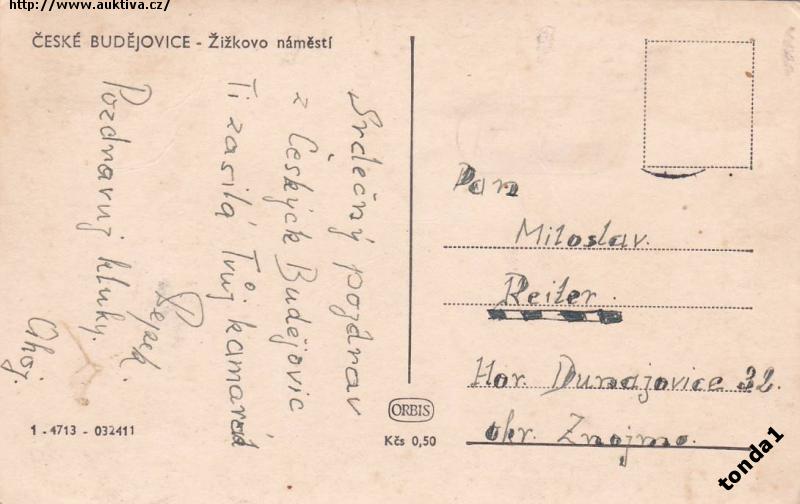 http://www.auktiva.cz/
ČESKÉ BUDĚJOVICE - Žižkovo náměstí
Srdečný pozdrav
z Českých Budějovic
Ti zasílá Tvůj kamarád
Pepek.
Pozdravuj kluky.
Ahoj.
Pan
Miloslav.
Reiter.
Hor. Dunajovice 32.
okr. Znojmo.
ORBIS
Kčs 0,50
1 - 4713 - 032411
tonda1